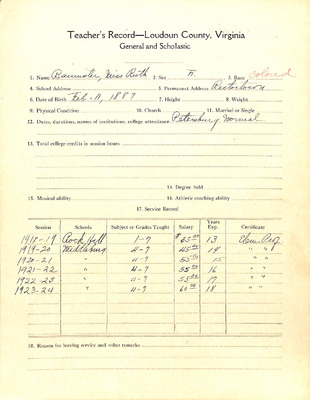 Teacher's Record—Loudoun County, Virginia
General and Scholastic
1. Name Bannister, Miss Ruth 2. Sex F. 3. Race Colored
4. School Address 5. Permanent Address Rectortown
6. Date of Birth Feb. 11, 1887 7. Height 8. Weight
9. Physical Condition 10. Church 11. Married or Single
12. Dates, durations, names of institutions, college attendance Petersburg Normal
13. Total college credits in session hours
14. Degree held
15. Musical ability 16. Athletic coaching ability
17. Service Record
Session Schools Subject or Grades Taught Salary Years Exp. Certificate
1918-19 Rock Hill 1-7 $ 65.00 13 Elem. Prof.
1919-20 Middleburg 4-7 45.00 14 " "
1920-21 " 4-7 55.00 15 " "
1921-22 " 4-7 55.00 16 " "
1922-23 " 4-7 55.00 17 " "
1923-24 " 4-7 60.00 18 " "
18. Reason for leaving service and other remarks